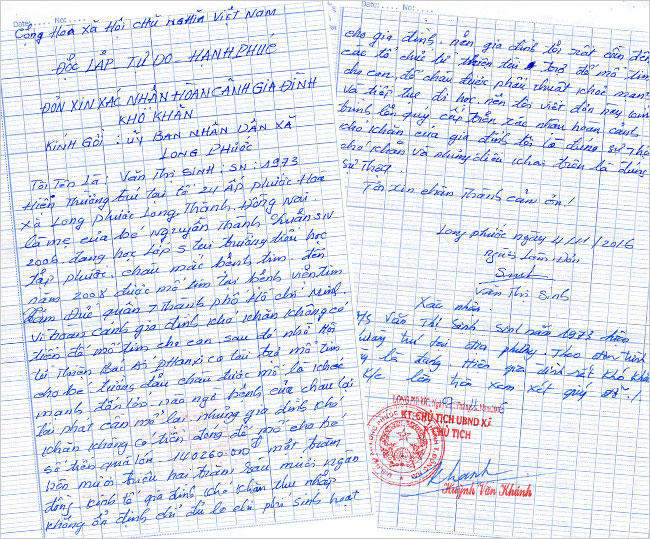 Date: No:
Cộng Hoà Xã Hội Chủ Nghĩa Việt Nam
ĐỘC LẬP, TỰ DO - HẠNH PHÚC
ĐƠN XIN XÁC NHẬN HOÀN CẢNH GIA ĐÌNH
KHÓ KHĂN
KÍNH GỞI : UỶ BAN NHÂN DÂN XÃ
LONG PHƯỚC
Tôi Tên Là : Văn Thị SINH : SN : 1973
Hiện Thường trú tại tổ 24 ẤP Phước Hoà
Xã Long Phước Long Thành Đồng Nai.
là mẹ của bé Nguyễn Thành Chuẩn SN
2006. đang học lớp 5 tại trường tiểu học
tập phước. cháu mắc bệnh tim. đến
năm 2008 được mổ tim tại bệnh viện tim
Tâm Đức quận 7 Thành phố Hồ Chí Minh
vì hoàn cảnh gia đình khó khăn không có
tiền để mổ tim cho con sau đó nhờ Hội
từ Thiện Bác Ái PHanxi cô tài trợ mổ tim
cho bé tưởng đâu cháu được mổ là khoẻ
mạnh đến lớn nào ngờ bệnh của cháu lại
tái phát cần mổ lại nhưng gia đình khó
khăn không có tiền đóng để mổ cho bé
số tiền quá lớn 140260.000đ một trăm
bốn mươi triệu hai trăm sáu mươi ngàn
đồng kinh tế gia đình khó khăn thu nhập
không ổn định chỉ đủ lo chi phí sinh hoạt
Date: No:
cho gia đình. nên gia đình tôi rất cần đến
các tổ chức từ thiện tài trợ để mổ tim
cho con, để cháu được phẩu thuật khoẻ mạnh
và tiếp tục đi học nên tôi viết đơn này
trình lên quý cấp trên xác nhận hoàn cảnh
khó khăn của gia đình tôi là đúng sự Thật
khó khăn và những điều khai trên là đúng
sự Thật.
Tôi xin chân Thành cảm ơn!
Long phước ngày 4/11/2016
Người Làm Đơn
Sinh
Văn Thị Sinh
Xác nhận
Văn Thị Sinh sinh năm 1973 hiện
trú tại địa phương. Theo đơn trình
là đúng. Hiện gia đình rất Khó Khăn
K/c lên trên xem xét giúp đỡ!
KT. CHỦ TỊCH UBND XÃ
CHỦ TỊCH
Khánh
Huỳnh Văn Khánh